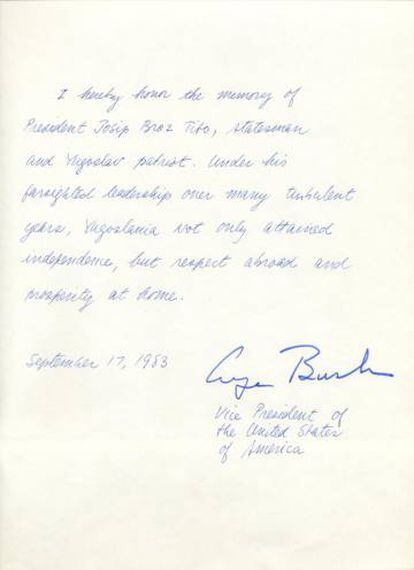 I hereby honor the memory of
President Josip Broz Tito, statesman
and Yugoslav patriot. Under his
farsighted leadership over many turbulent
years, Yugoslavia not only attained
independence, but respect abroad and
prosperity at home.
September 17, 1983
George Bush
Vice President of
the United States
of America